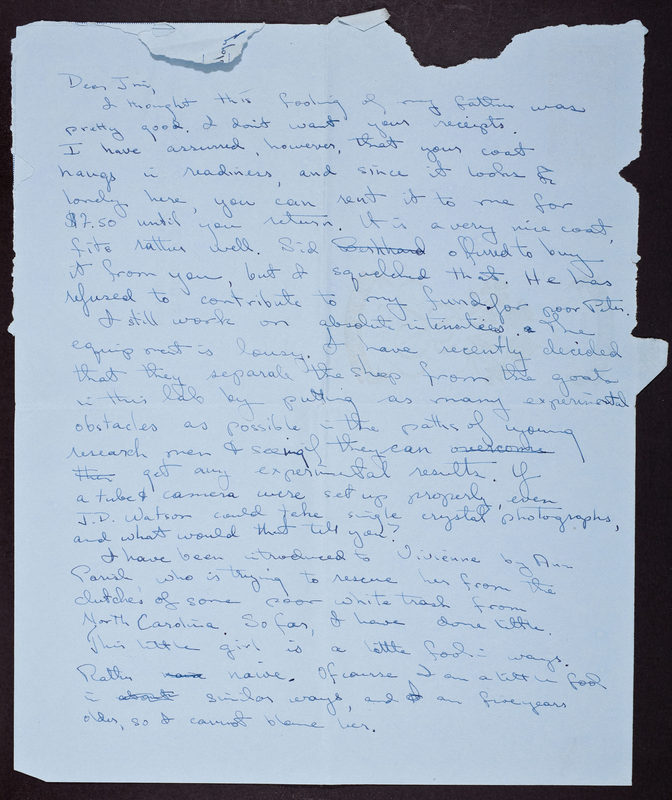 Dear Jim,
I thought this fooling of my father was
pretty good. I don't want your receipts.
I have assumed, however, that your coat
hangs in readiness, and since it looks so
lonely here, you can rent it to me for
$7.50 until you return. It is a very nice coat,
fits rather well. Sid offered to buy
it from you, but I squelched that. He has
refused to contribute to my fund for poor Peter.
I still work on absolute intensities. The
equipment is lousy. I have recently decided
that they separate the sheep from the goats
in this lab by putting as many experimental
obstacles as possible in the paths of young
research men & seeing if they can overcome
them get any experimental results. If
a tube & camera were set up properly, even
J.D. Watson could take single crystal photographs,
and what would that tell you?
I have been introduced to Vivienne by Ann
Parish who is trying to rescue her from the
clutches of some poor white trash from
North Carolina. So far, I have done little.
This little girl is a little fool in ways.
Rather naive. Of course I am a little fool
in about similar ways, and I am five years
older, so I cannot blame her.